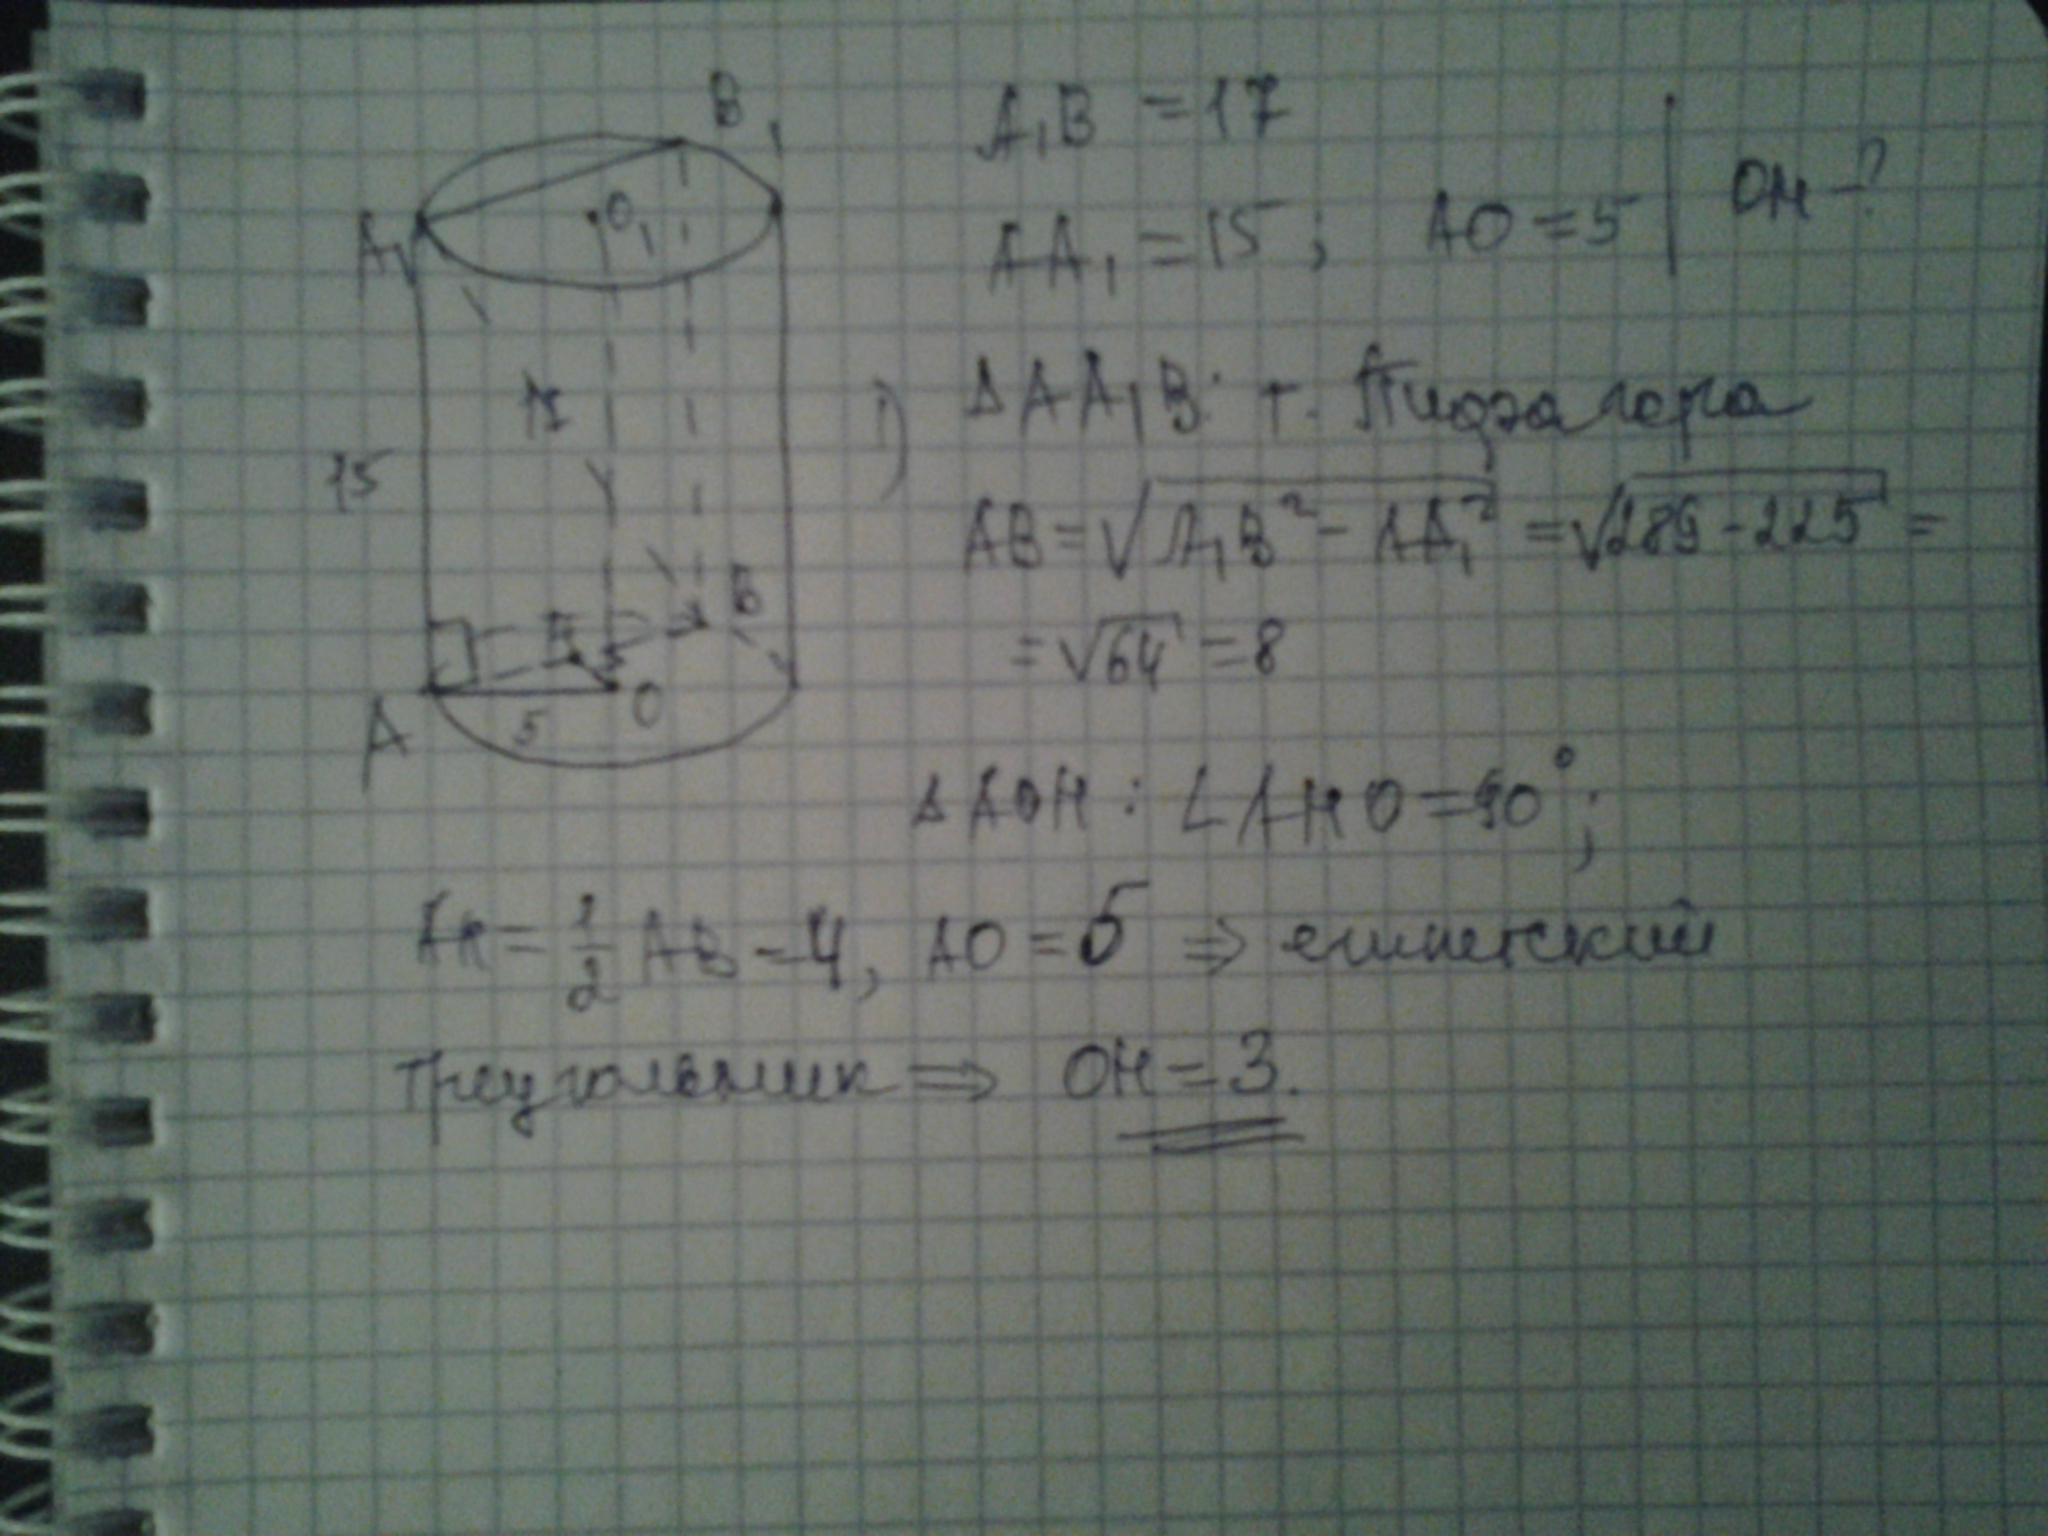 A₁B = 17
AA₁ = 15; AO = 5 | OH - ?
B₁
A₁
O₁
15
17
B
H
A
5
O
1) ΔAA₁B: т. Пифагора
AB = √(A₁B² - AA₁²) = √(289 - 225) =
= √64 = 8
ΔAOH: ∠AHO = 90°;
AH = 1/2 AB = 4, AO = 5 ⇒ египетский
треугольник ⇒ OH = 3.